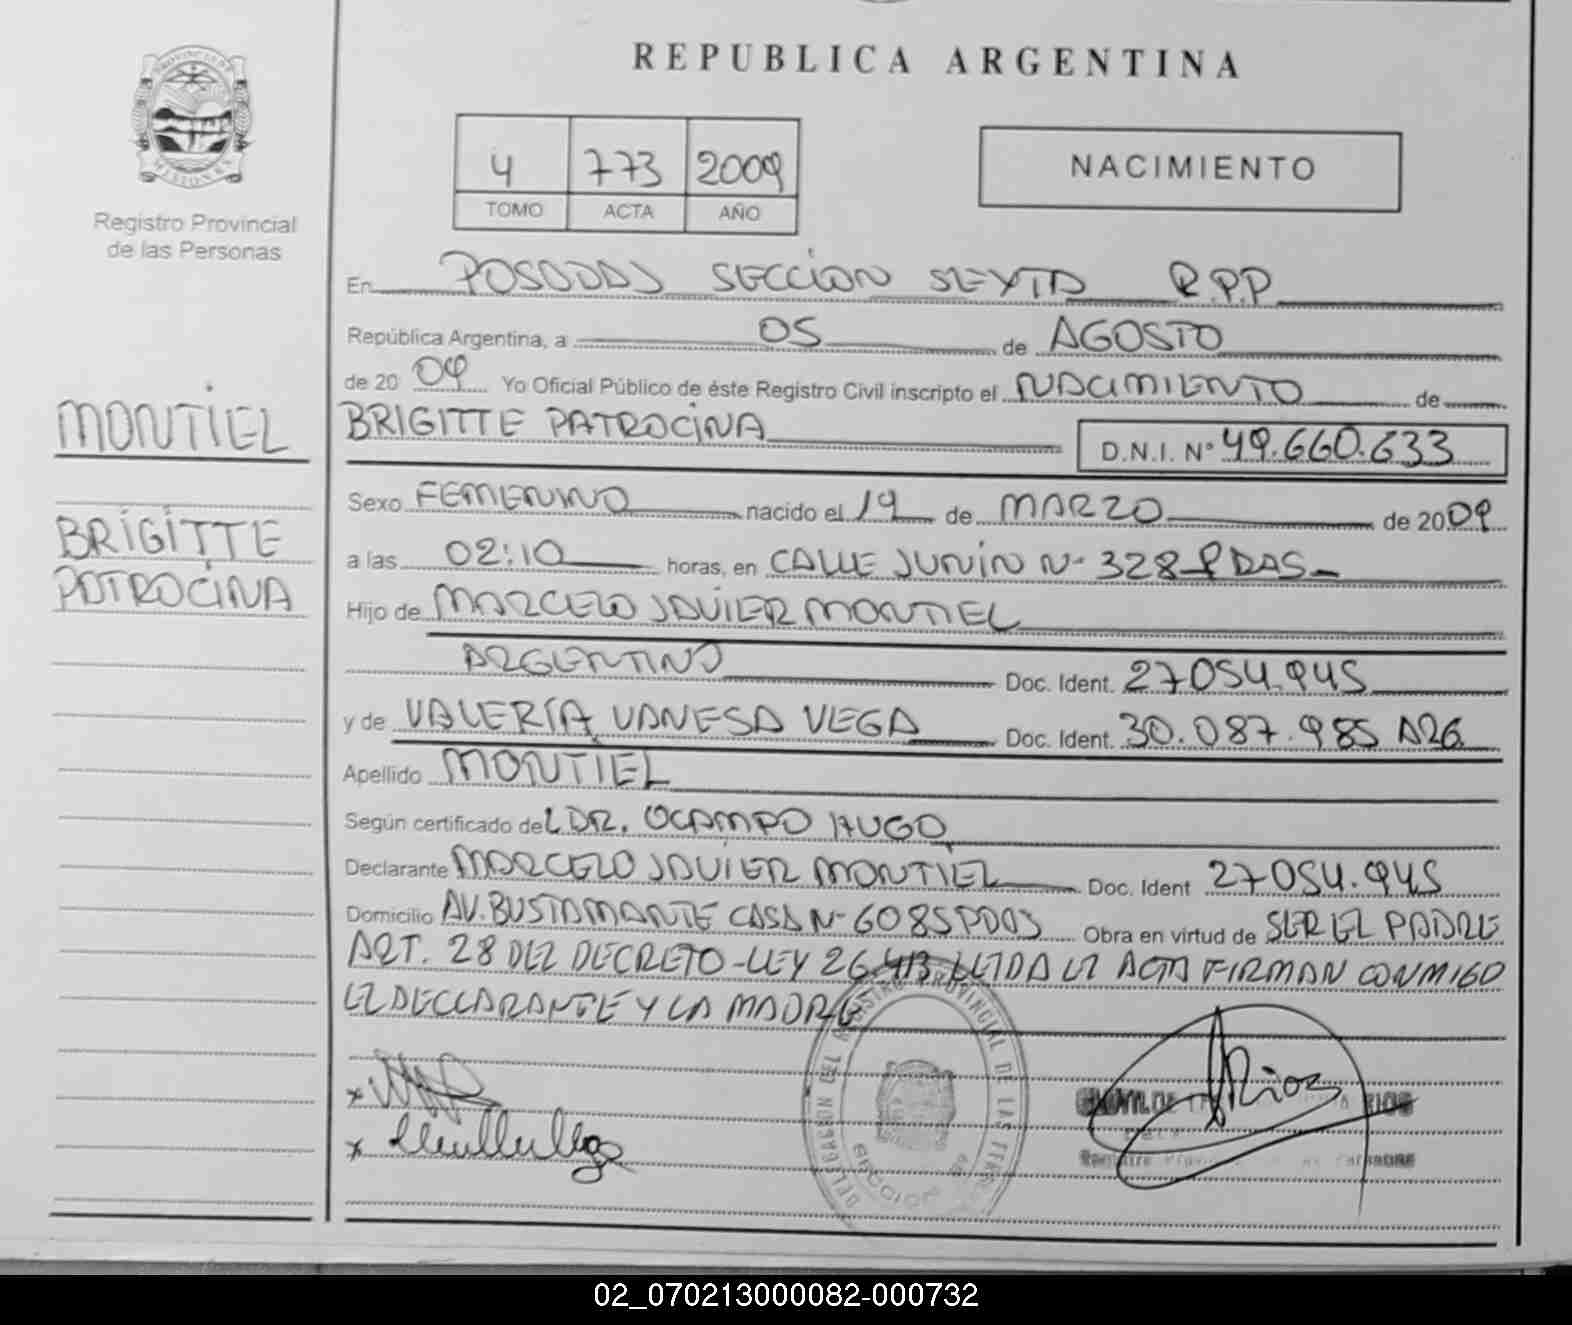 REPUBLICA ARGENTINA
PROVINCIA DE
MISIONES
Registro Provincial
de las Personas
4 773 2009
TOMO ACTA AÑO
NACIMIENTO
En POSADAS SECCION SEXTA R.P.P
República Argentina, a 05 de AGOSTO
de 2009 Yo Oficial Público de éste Registro Civil inscripto el NACIMIENTO de
BRIGITTE PATROCINA D.N.I. Nº 49.660.633
MONTIEL
BRIGITTE
PATROCINA
Sexo FEMENINO nacido el 19 de MARZO de 2009
a las 02:10 horas, en CALLE JUNIN N- 328 PDAS
Hijo de MARCELO JAVIER MONTIEL
ARGENTINO Doc. Ident. 27.054.945
y de VALERIA VANESA VEGA Doc. Ident. 30.087.985 ARG
Apellido MONTIEL
Según certificado del DR. OCAMPO HUGO
Declarante MARCELO JAVIER MONTIEL Doc. Ident 27054.945
Domicilio AV. BUSTAMANTE CASA N- 6085 PDAS Obra en virtud de SER EL PADRE
ART. 28 DEL DECRETO-LEY 26.413 LEIDA EL ACTA FIRMAN CONMIGO
EL DECLARANTE Y LA MADRE
DELEGACION DEL REGISTRO PROVINCIAL DE LAS
SECCION
Rios
RIOS
02_070213000082-000732